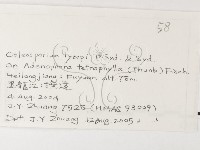 58
Coleosporium lycopi (Syd. & Syd.
on Adenophora tetraphylla (Thunb.) Fisch.
Heilongjiang: Fuyuan alt 75m.
黑龙江:抚远
4 Aug. 2004
J.Y. Zhuang 7525 (HMAS 93009)
Det J.Y Zhuang 12 Aug. 2005